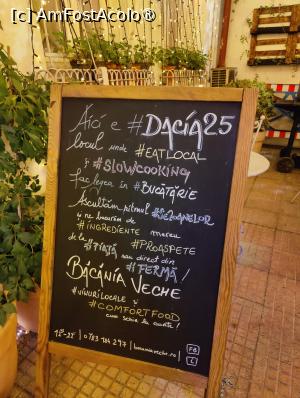 [c] AmFostAcolo®
Aici e #DACIA25
locul unde #EATLOCAL
și #SLOWCOOKING
fac legea în #BUCĂTĂRIE
Ascultăm ritmul #SEZOANELOR
și ne bucurăm de
#INGREDIENTE mereu
#PROASPETE
de la #PIAȚĂ sau direct din
#FERMĂ!
BĂCĂNIA VECHE
#VINURILOCALE și
#COMFORTFOOD
cum scrie la carte!
0783 184 297
bacaniaveche.ro
FB